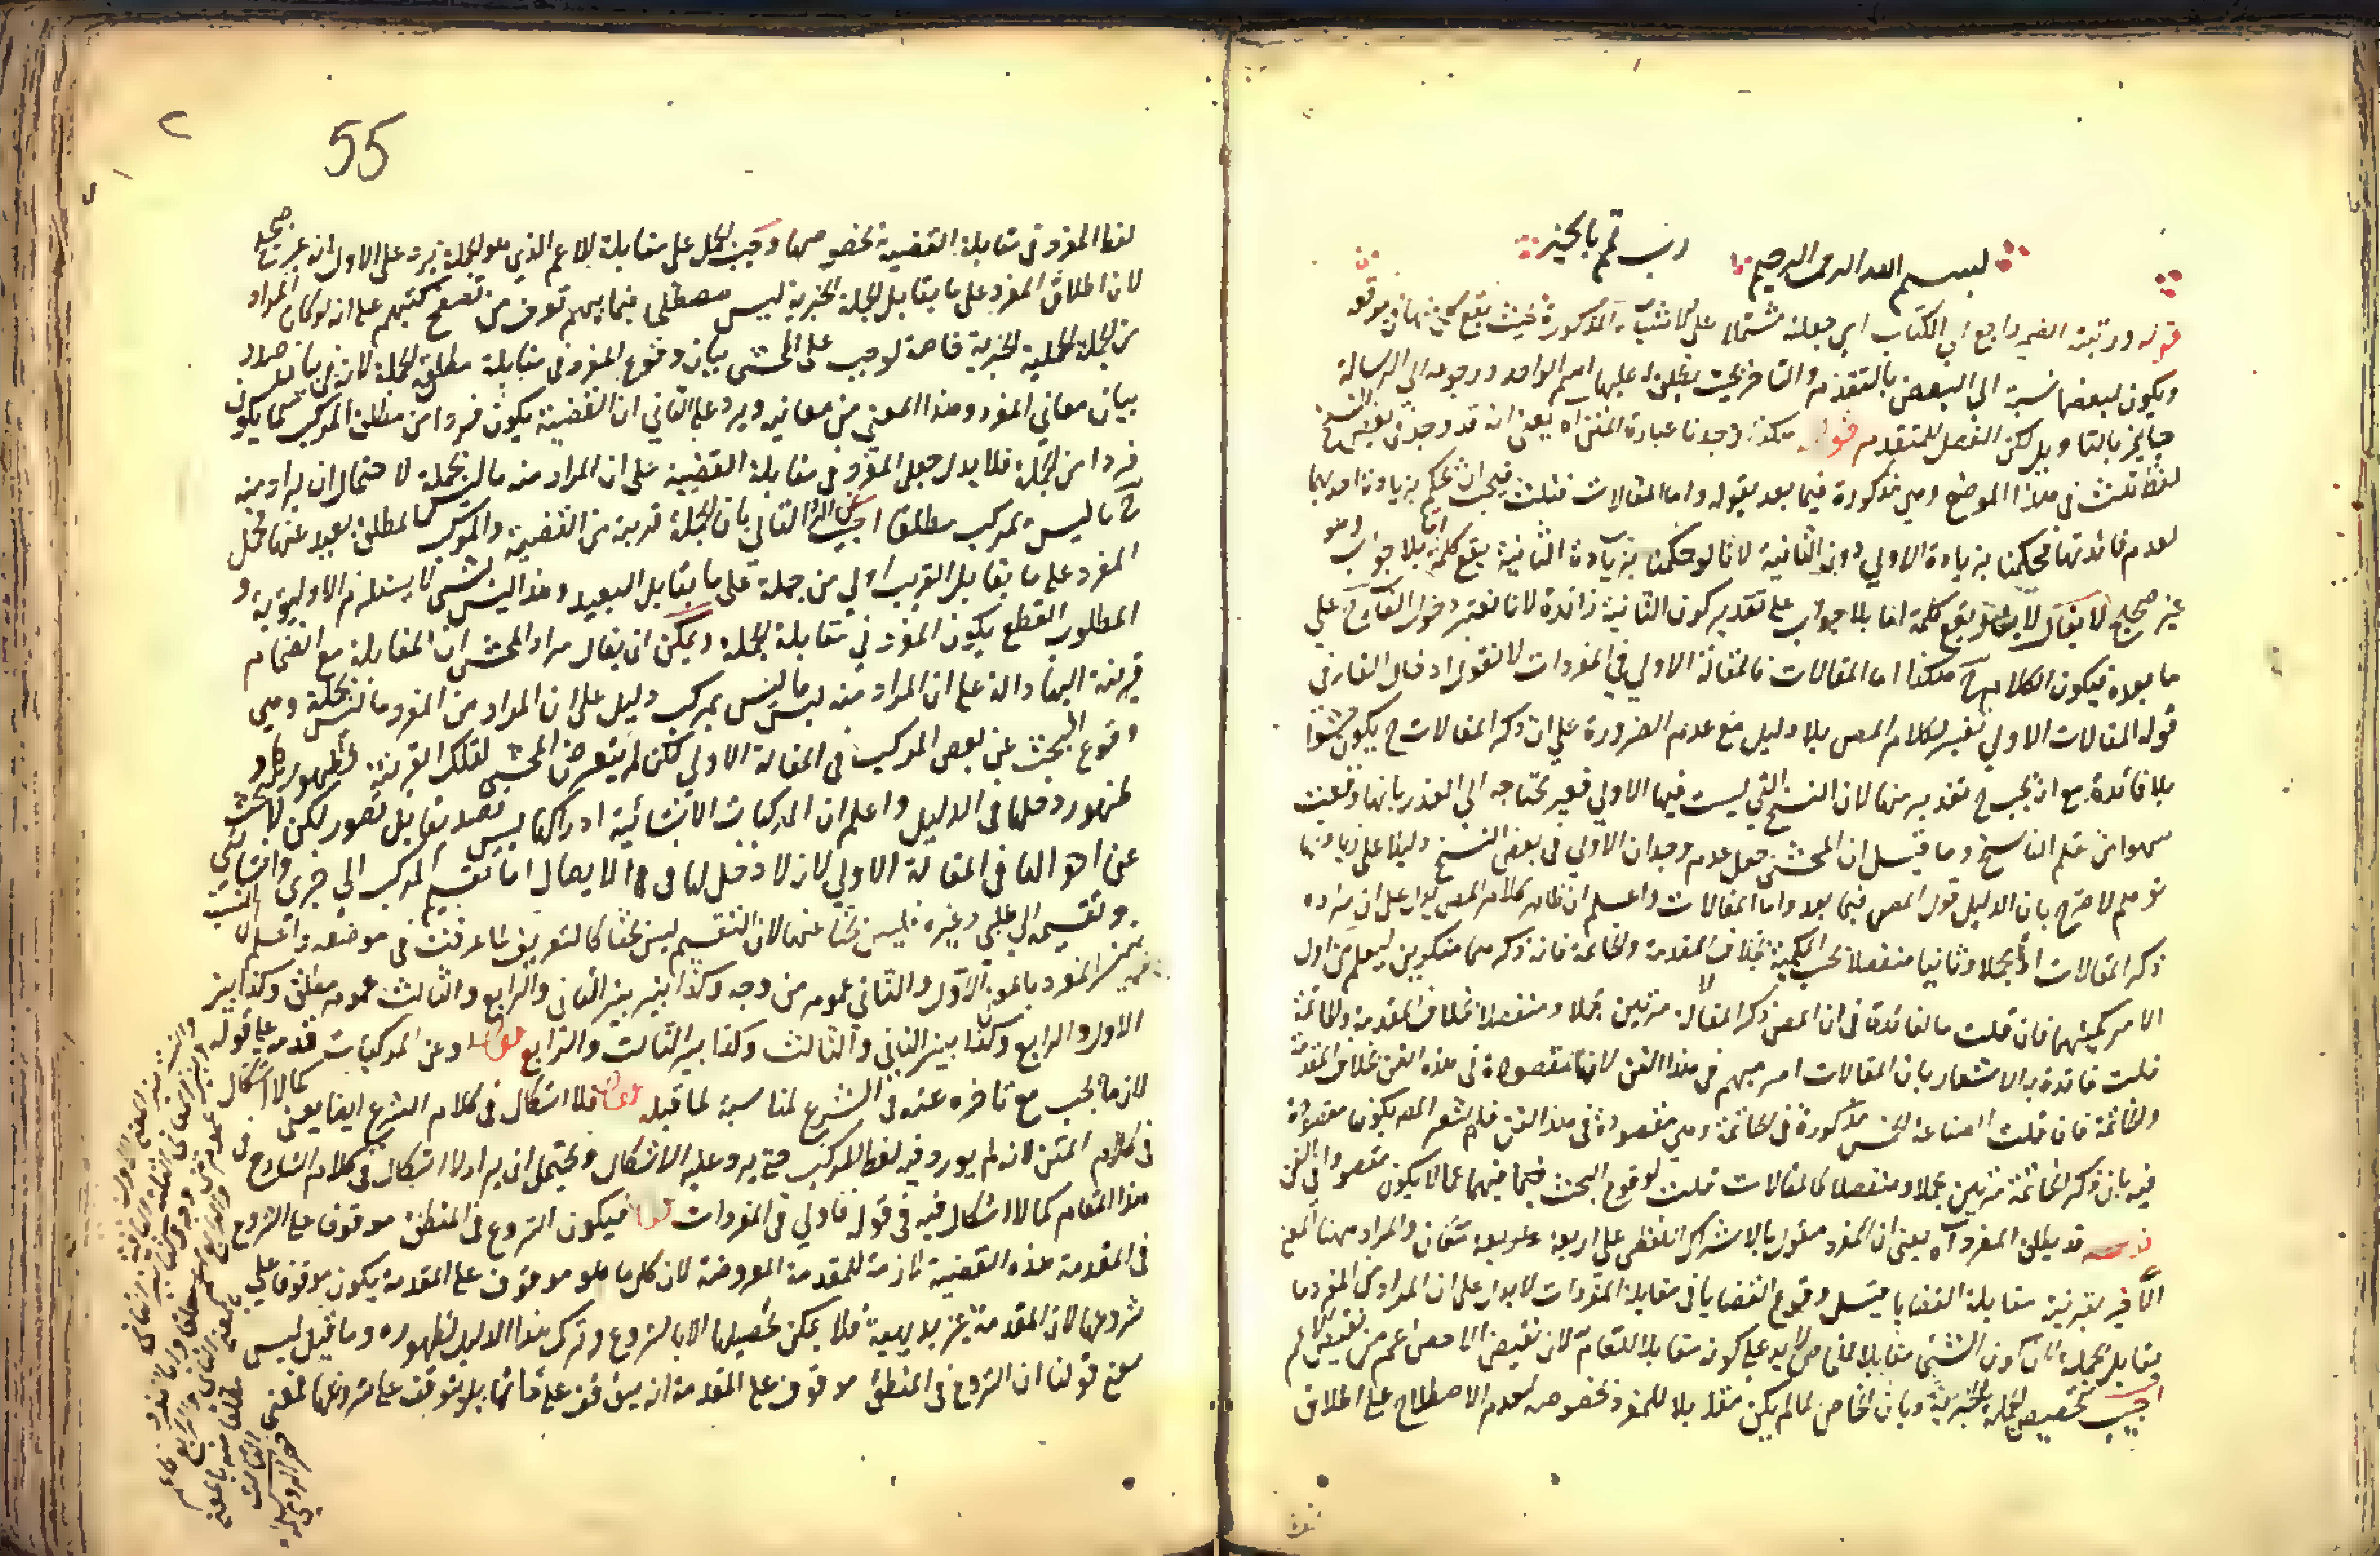 بسم الله الرحمن الرحيم رب تمم بالخير
قوله ورتبته الضمير راجع الى الكتاب اي جعلته مشتملا على الاشياء المذكورة بحيث يقع كل منها في موقعه
ويكون لبعضها نسبة الى البعض بالتقدم والتاخر بحيث يطلق عليها اسم الواحد ورجوعه الى الرسالة
جايز بالتاويل لكن الفصل للمتقدم قوله هكذا وجدنا عبارة المتن اه يعني انه قد وجد في بعض النسخ
لفظ ثلث في هذا الموضع وهي مذكورة فيما بعد بقوله واما المقالات فثلث فيجب ان يحكم بزيادة احديهما
لعدم فائدتها فحكمنا بزيادة الاولى دون الثانية لانا لو حكمنا بزيادة الثانية يقع كلمة اما بلا جواب وهو
غير صحيح لا يقال لا يقع كلمة اما بلا جواب على تقدير كون الثانية زائدة لانا نعتبر دخول الفاء على
ما بعده فيكون الكلام هكذا اما المقالات فالمقالة الاولى في المفردات لانا نقول ادخال الفاء في
قوله المقالات الاولى تغيير لكلام المص بلا دليل مع عدم الضرورة على ان ذكر المقالات ح يكون حشوا
بلا فائدة مع انه يجب ح تقدير منها لان النسخ التي ليست فيها الاولى فغير محتاجه الى العذر بانها وقعت
سهوا من قلم الناسخ وما قيل ان المحشي جعل عدم وجدان الاولى في بعض النسخ دليلا على زيادتها
توهم لا صرح بان الدليل قول المص فيما بعد واما المقالات واعلم ان ظاهر كلام المص يدل على ان مراده
ذكر المقالات اولا مجملا وثانيا مفصلا بحسب الكمية بخلاف المقدمة والخاتمة فانه ذكرهما منكرين ليعلم من اول
الامر كميتهما فان قلت ما الفائدة في ان المص ذكر المقالة مرتين مجملا ومفصلا بخلاف المقدمة والخاتمة
قلت فائدة الاشعار بان المقالات امر مبهم في هذا الفن لانها مقصودة في هذه الفن بخلاف المقدمة
والخاتمة فان قلت الصناعة الخمس مذكورة في الخاتمة وهي مقصودة في هذا الفن فلم لم يشعر المص بكونها مقصودة
فيه بان ذكر الخاتمة مرتين مجملا ومفصلا كالمقالات قلت لوقوع البحث فيها عما لا يكون مقصودا في الفن
قوله قد يطلق المفرد اه يعني ان المفرد مقول بالاشتراك اللفظي على اربعة معان والمراد ههنا المعنى
الاخير بقرينة مقابلة القضايا قيل وقوع القضايا في مقابلة المفردات لا يدل على ان المراد من المفرد ما
يقابل الجملة لان كون الشئ مقابلا للخاص لا يدل على كونه مقابلا للعام لان نقيض الاخص اعم من نقيض الاعم
اجيب بتخصيص الجملة بالخبرية وبان الخاص لما لم يكن مقابلا للمفرد بخصوصه لعدم الاصطلاح على اطلاق
55
لفظ المفرد في مقابلة القضية بخصوصها وجب الحمل على مقابلة الاعم الذي هو الجملة يرد على الاول انه غير صحيح
لان اطلاق المفرد على ما يقابل الجملة الخبرية ليس مصطلحا فيما بينهم تعرف من تصفح كتبهم على انه لو كان المراد
من الجملة الجملة الخبرية خاصة لوجب على المحشي بيان وقوع المفرد في مقابلة مطلق الجملة لانه في بيان صدد
بيان معاني المفرد وهذا المعنى من معانيه ويرد على الثاني ان القضية يكون فردا من مطلق المركب كما يكون
فردا من الجملة فلا يدل جعل المفرد في مقابلة القضية على ان المراد منه ما ليس بجملة لاحتمال ان يراد منه
ح ما ليس بمركب مطلقا اجيب عن الثاني بان الجملة قريبة من القضية والمركب المطلق بعيد عنها فحمل
المفرد على ما يقابل القريب اولى من حمله على ما يقابل البعيد وهذا ليس بشئ لا يستلزم الاولوية و
المطلوب القطع بكون المفرد في مقابلة الجملة ويمكن ان يقال مراد المحشي ان المقابلة مع انضمام
قرينة اليها دالة على ان المراد منه ليس ما ليس بمركب دليل على ان المراد من المفرد ما ليس بجملة وهي
وقوع البحث عن بعض المركب في المقالة الاولى لكن لم يتعرض المحشي لتلك القرينة
لظهور دخلها في الدليل واعلم ان المركبات الانشائية ادراكها ليس تصديقا بل تصور لكن لا يبحث
عن احوالها في المقالة الاولى لانه لا دخل لها في الايصال اما تقسيم المركب الى خبري وانشائي
وتقسيمه الى طلبي وغيره فليس بحثا عنها لان التقسيم ليس بحثا كالتعريف كما عرفت في موضعه واعلم ان النسبة
بين المفرد بالمعنى الاول والثاني عموم من وجه وكذا بين الثاني والرابع والثالث عموم مطلق وكذا بين
الاول والرابع وكذا بين الثاني والثالث وكذا بين الثالث والرابع قوله وعن المركبات قدم على قوله
لازما يجب مع تاخره عنه في الشرع لمناسبة لما قبله قوله فلا اشكال في كلام الشرح ايضا يعني كما لا اشكال
في كلام المتن لانه لم يورد فيه لفظ المركب حتى يرد عليه الاشكال ويحتمل ان يراد لا اشكال في كلام الشارح في
هذا المقام كما لا اشكال فيه في قوله فاولى في المفردات قوله فيكون الشروع في المنطق موقوفا على الشروع
في المقدمة هذه القضية لازمة للمقدمة المعروضة لان كل ما هو موقوف على المقدمة يكون موقوفا على
شروعها لان المقدمة غير بديهية فلا يمكن تحصيلها الا بالشروع وترك هذا الدليل لظهوره وما قيل ليس
معنى قولنا ان الشروع في المنطق موقوف على المقدمة انه يتوقف على ذاتها بل يتوقف على شروعها فمعنى